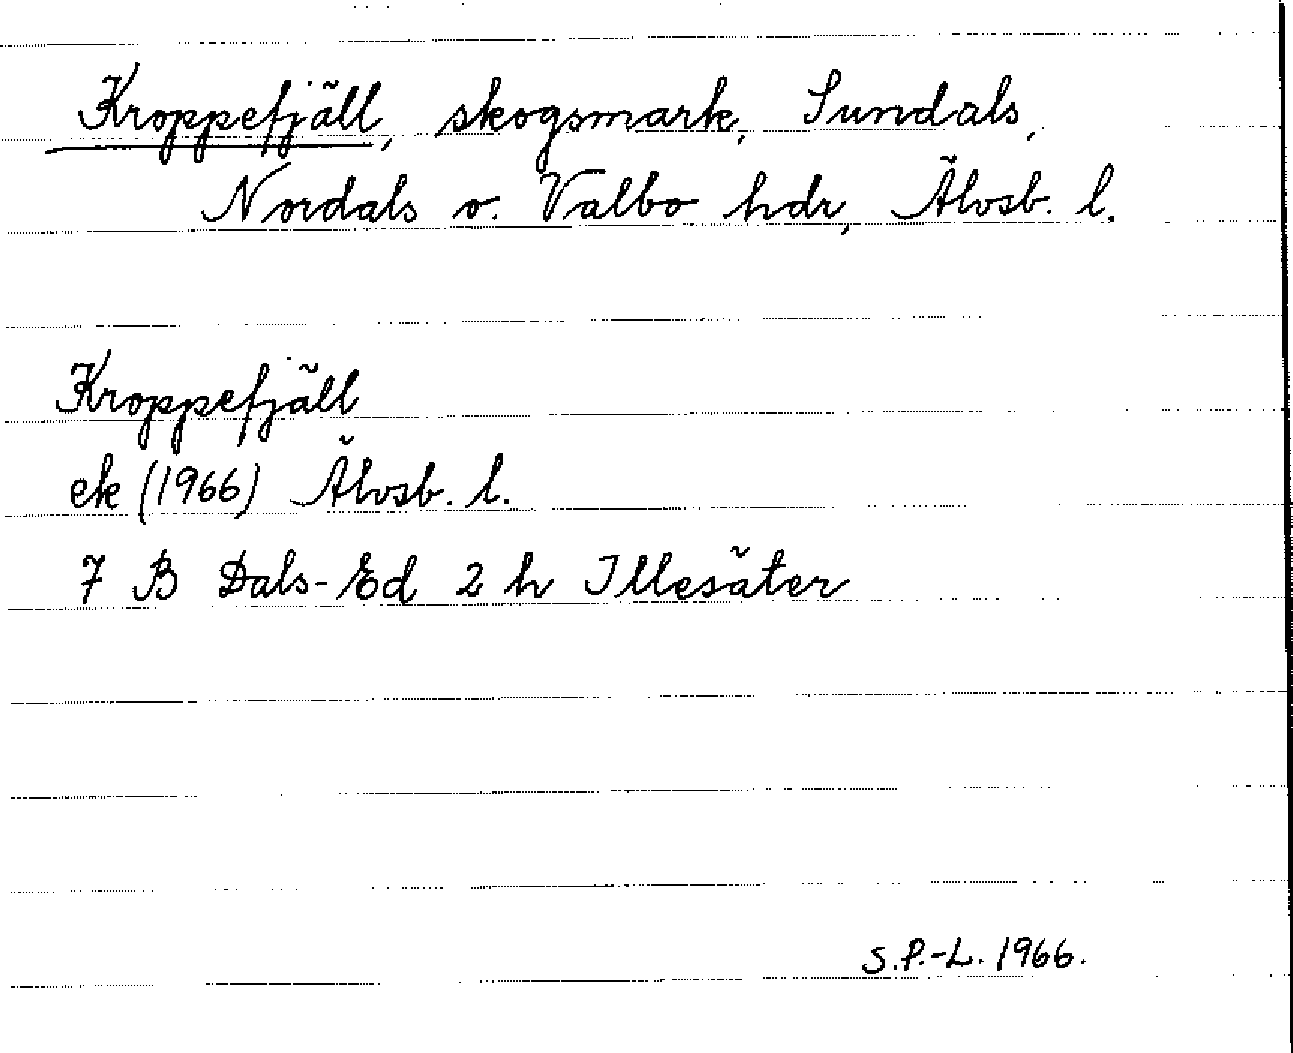 Kroppefjäll, skogsmark, Sundals,
Nordals o. Valbo hdr, Älvsb. l.
Kroppefjäll
ek (1966) Älvsb. l.
7 B Dals-Ed 2 h Illesäter
S.P.-L. 1966.